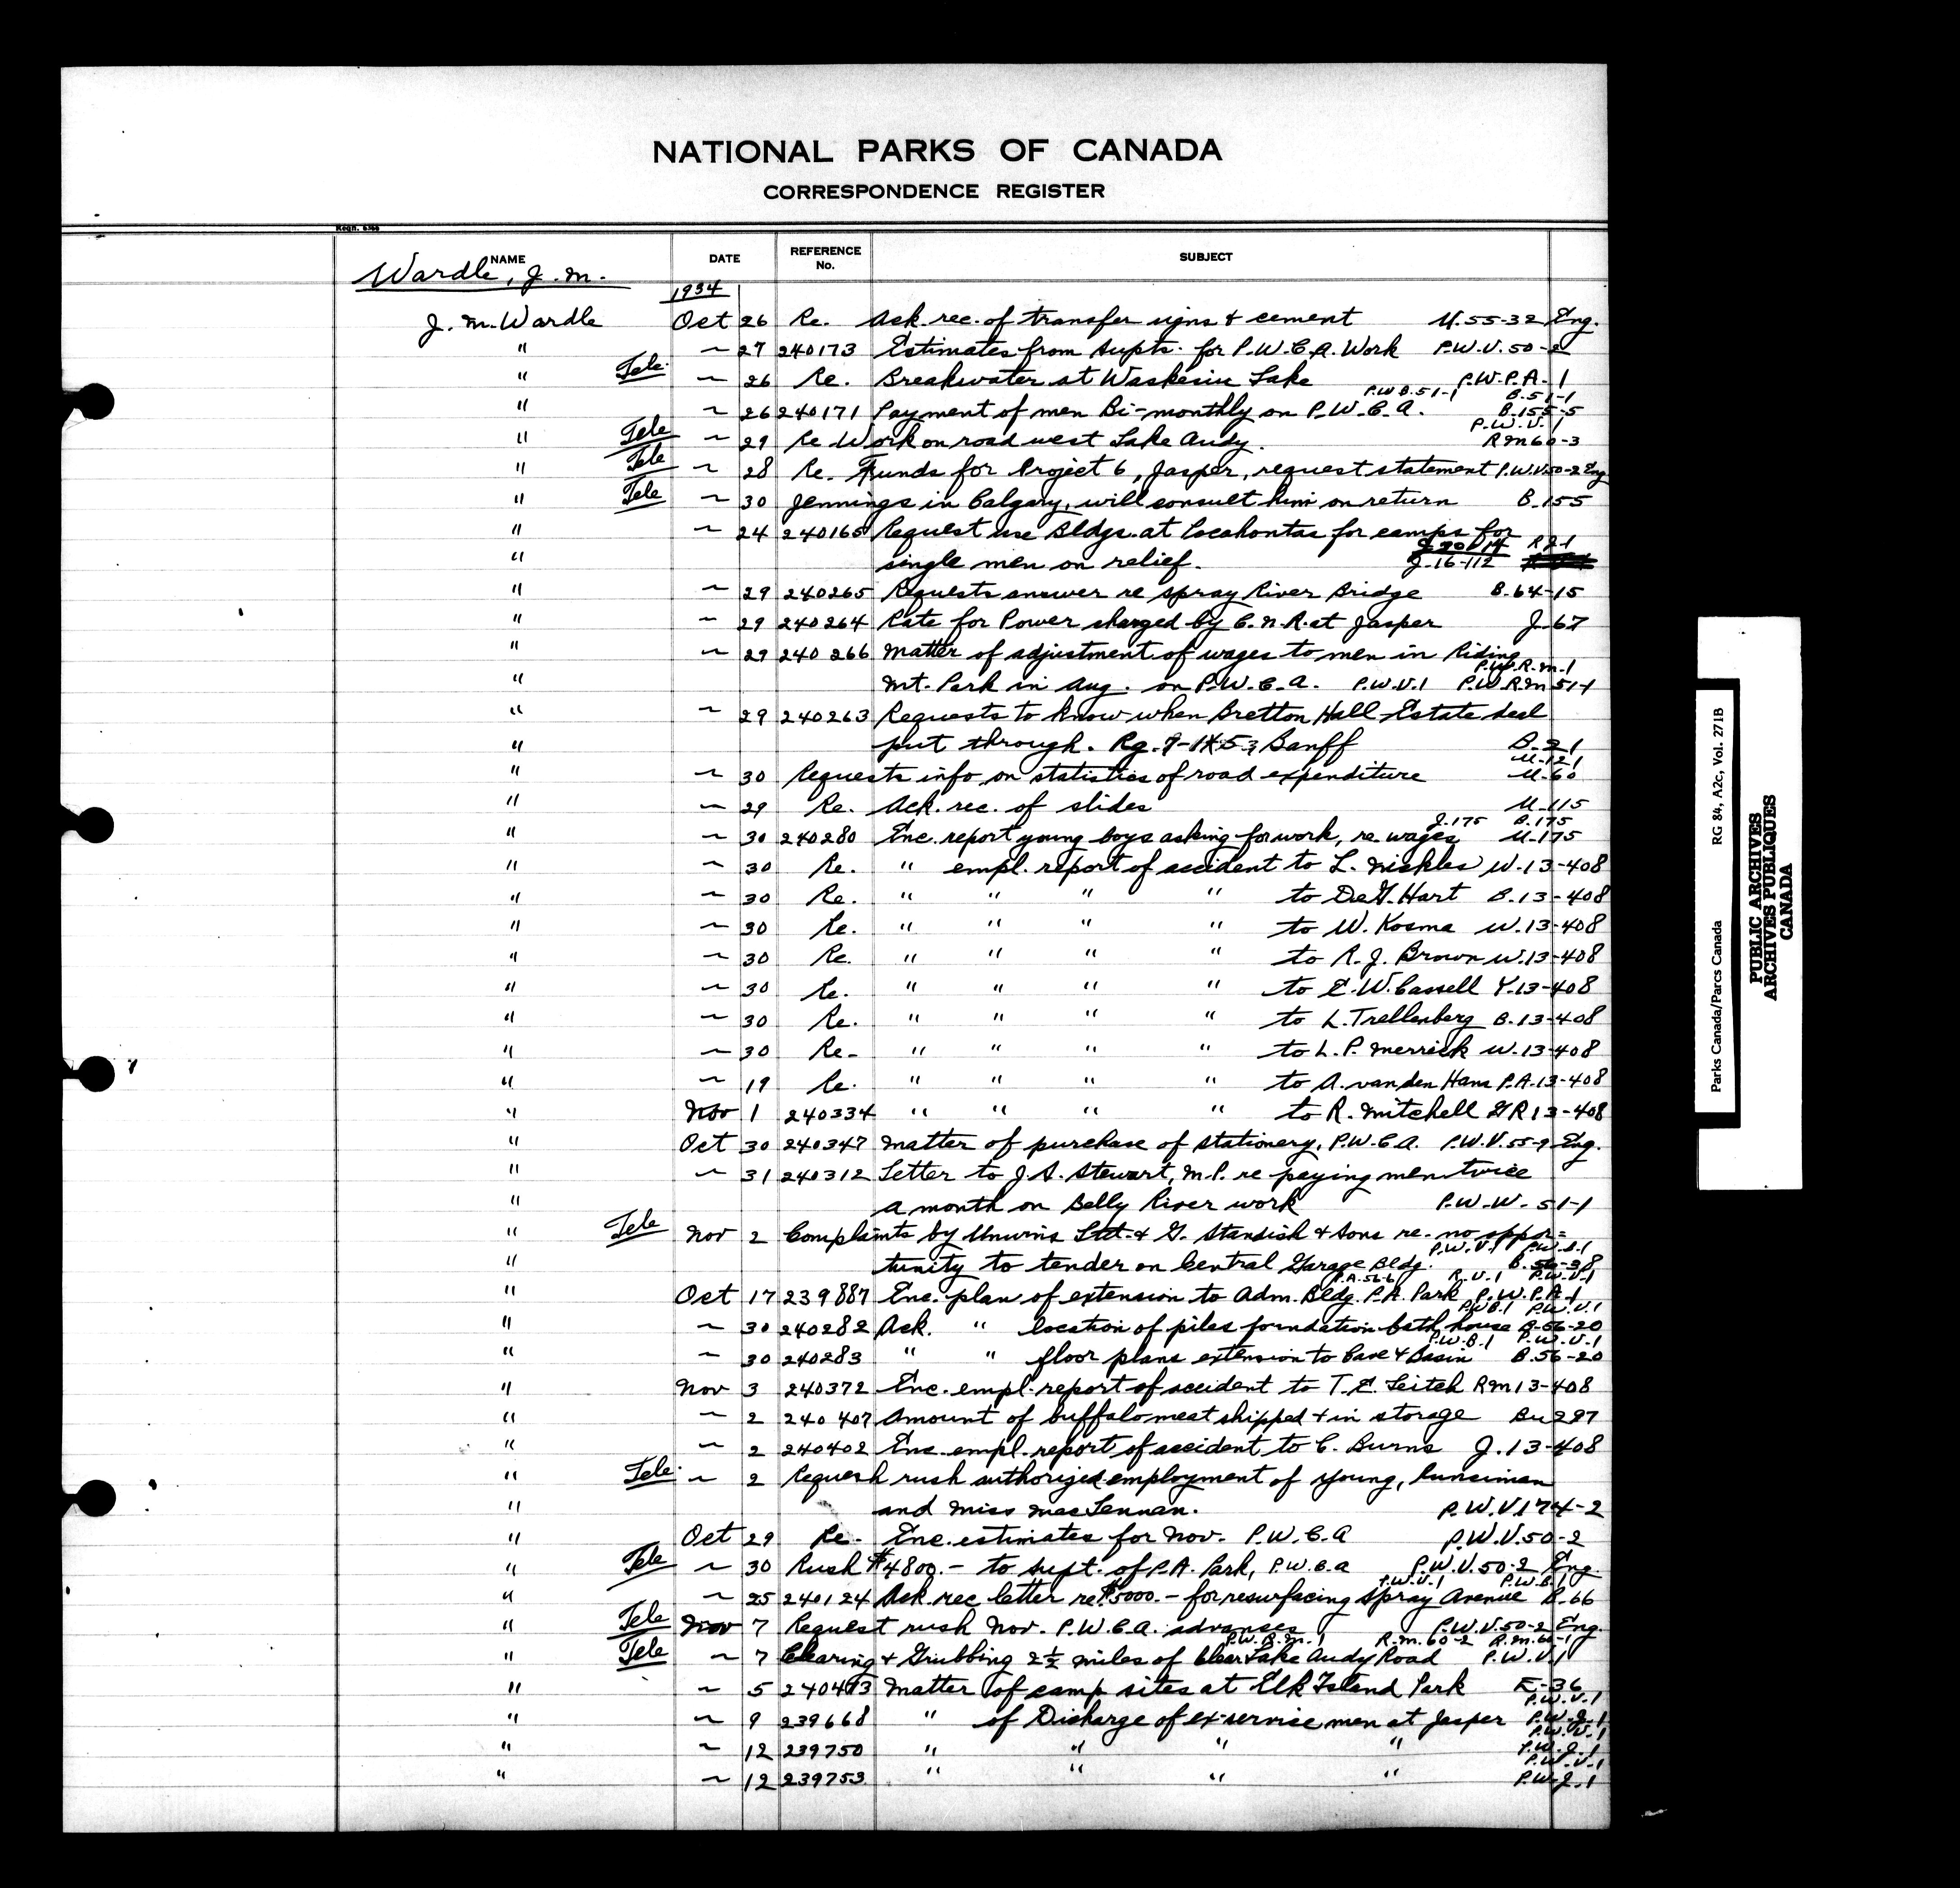 NATIONAL PARKS OF CANADA
CORRESPONDENCE REGISTER
Reqn. 6366
NAME DATE REFERENCE No. SUBJECT
Wardle, J. M.
1934
J. M. Wardle Oct 26 Re. Ack. rec. of transfer signs & cement U.55-32 Eng.
" ~ 27 240173 Estimates from Supts. for P.W.C.A. Work P.W.V.50-2
" Tele. ~ 26 Re. Breakwater at Waskesiu Lake P.W.P.A.-1
P.W.B.51-1 B.51-1
" ~ 26 240171 Payment of men Bi-monthly on P.W.C.A. B.155-5
P.W.V.1
" Tele ~ 29 Re Work on road west Lake Audy. R.M 60-3
" Tele ~ 28 Re. Funds for Project 6, Jasper, request statement P.W.V.50-2 Eng
" Tele ~ 30 Jennings in Calgary, will consult him on return B.155
" ~ 24 240165 Request use Bldgs. at Pocahontas for camps for
J.201-14 RJ-1
" single men on relief. J.16-112
" ~ 29 240265 Requests answer re Spray River Bridge B.64-15
" ~ 29 240264 Rate for Power charged by C.N.R. at Jasper J-67
" ~ 29 240266 Matter of adjustment of wages to men in Riding
P.W.R.M.1
" Mt. Park in Aug. on P.W.C.A. P.W.V.1 P.W.R.M 51-1
" ~ 29 240263 Requests to know when Bretton Hall Estate deal
" put through. Banff B.21
U-121
" ~ 30 Requests info on statistics of road expenditure U-60
" ~ 29 Re. Ack. rec. of slides U-115
J.175 B.175
" ~ 30 240280 Enc. report young boys asking for work, re. wages U-175
" ~ 30 Re. " empl. report of accident to L. Nickles W.13-408
" ~ 30 Re. " " " " to DeG. Hart B.13-408
" ~ 30 Re. " " " " to W. Kosma W.13-408
" ~ 30 Re. " " " " to R. J. Brown W.13-408
" ~ 30 Re. " " " " to E. W. Cassell Y.13-408
" ~ 30 Re. " " " " to L. Trellenberg B.13-408
" ~ 30 Re- " " " " to L. P. Merrick W.13-408
" ~ 19 Re. " " " " to A. van den Ham P.A.13-408
" Nov 1 240334 " " " " to R. Mitchell G R 13-408
" Oct 30 240347 Matter of purchase of stationery, P.W.C.A. P.W.V.55-9 Eng.
" ~ 31 240312 Letter to J. S. Stewart, M.P. re paying men twice
" a month on Belly River work P.W.W. 51-1
" Tele Nov 2 Complaints by Unwins Ltd. & G. Standish & Sons re. no oppor=
P.W.V.1 P.W.B.1
" tunity to tender on Central Garage Bldg. B.56-38
P.A.56-6 R.V.1 P.W.V.1
" Oct 17 239887 Enc. plan of extension to Adm. Bldg. P.A. Park P.W.P.A-1
P.W.B.1 P.W.V.1
" ~ 30 240282 Ack. " location of piles foundation bath house B-56-20
P.W.B.1 P.W.V.1
" ~ 30 240283 " " floor plans extension to Cave & Basin B.56-20
" Nov 3 240372 Enc. empl. report of accident to T. E. Leitch RM 13-408
" ~ 2 240407 Amount of buffalo meat shipped & in storage Bu 297
" ~ 2 240402 Enc. empl. report of accident to C. Burns J.13-408
" Tele. ~ 2 Request rush authorized employment of Young, Cunniman
" and Miss MacLennan. P.W.V.174-2
" Oct 29 Re. Enc. estimates for Nov. P.W.C.A P.W.V.50-2
" Tele ~ 30 Rush $4800.- to supt. of P.A. Park, P.W.C.A P.W.V.50-2 Eng.
P.W.V.1 P.W.B.1
" ~ 25 240124 Ack rec letter re. $5000.- for resurfacing Spray Avenue B.66
" Tele Nov 7 Request rush Nov. P.W.C.A. advances P.W.V.50-2 Eng.
P.W.R.M.1 R.M.60-2 R.M.60-1
" Tele ~ 7 Clearing & Grubbing 2½ miles of Clear Lake Audy Road P.W.V.1
" ~ 5 240473 Matter of camp sites at Elk Island Park E-36
P.W.V.1
" ~ 9 239668 " of Discharge of ex-service men at Jasper P.W.J.1
P.W.V.1
" ~ 12 239750 " " " " P.W.J.1
P.W.V.1
" ~ 12 239753 " " " " P.W.J.1
Parks Canada/Parcs Canada RG 84, A2c, Vol. 271B
PUBLIC ARCHIVES
ARCHIVES PUBLIQUES
CANADA